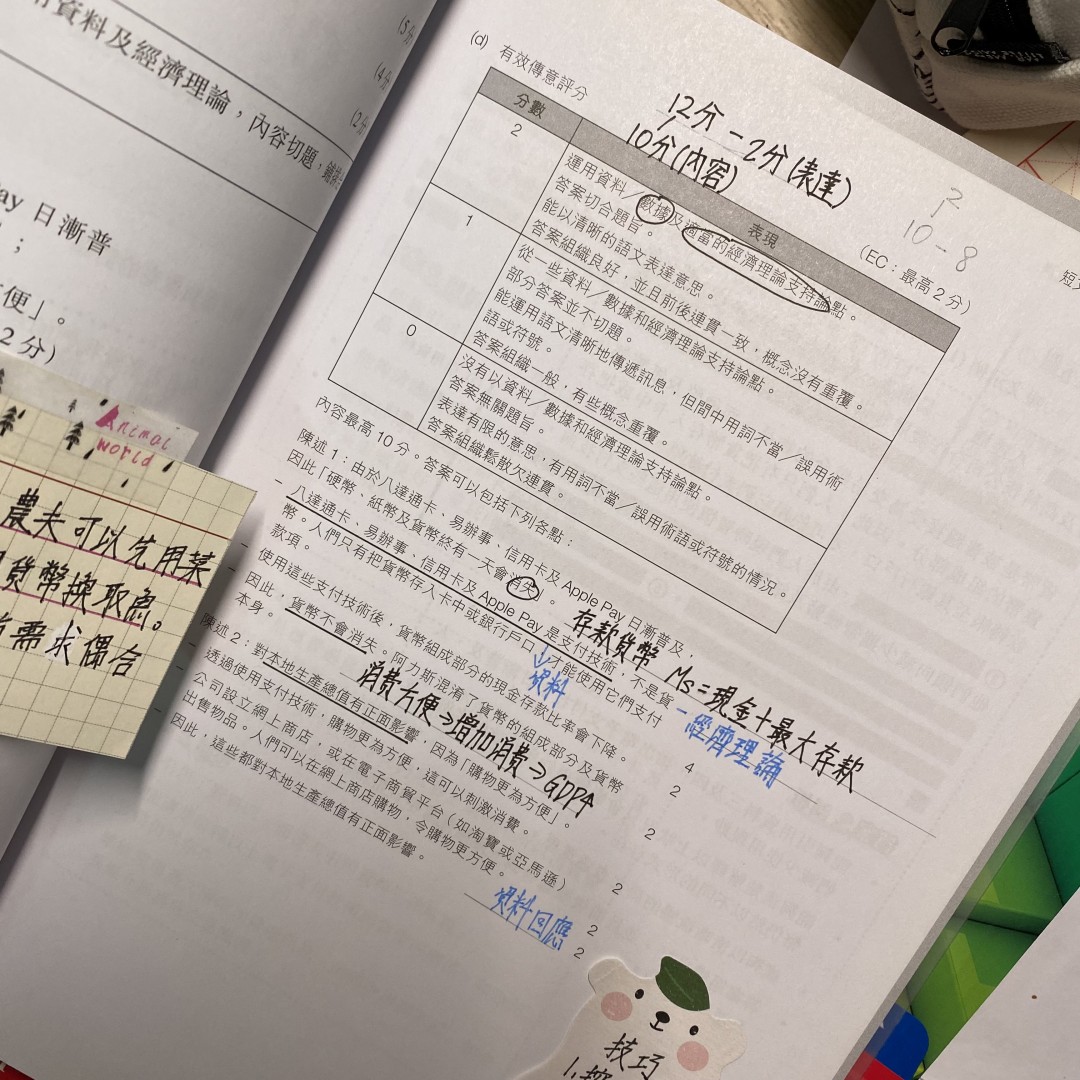 (5分)
用資料及經濟理論，內容切題，
(4分)
(2分)
ay 日漸普
便」。
2 分)
Animal
world
農夫可以先用菜
貨幣換取魚。
需求偶合
(d) 有效傳意評分
12分 - 2分(表達)
10分(內容)
2
10 - 8
(EC：最高 2 分)
分數
表現
2
運用資料／數據及適當的經濟理論支持論點。
答案切合題旨。
能以清晰的語文表達意思。
答案組織良好，並且前後連貫一致，概念沒有重覆。
1
從一些資料／數據和經濟理論支持論點。
部分答案並不切題。
能運用語文清晰地傳遞訊息，但間中用詞不當／誤用術
語或符號。
答案組織一般，有些概念重覆。
0
沒有以資料／數據和經濟理論支持論點。
答案無關題旨。
表達有限的意思，有用詞不當／誤用術語或符號的情況。
答案組織鬆散欠連貫。
內容最高 10 分。答案可以包括下列各點：
陳述 1：由於八達通卡、易辦事、信用卡及 Apple Pay 日漸普及，
因此「硬幣、紙幣及貨幣終有一天會消失」。
存款貨幣 Ms=現金+最大存款
- 八達通卡、易辦事、信用卡及 Apple Pay 是支付技術，不是貨
幣。人們只有把貨幣存入卡中或銀行戶口，才能使用它們支付
款項。
4
資料
- 經濟理論
使用這些支付技術後，貨幣組成部分的現金存款比率會下降。
2
因此，貨幣不會消失。阿力斯混淆了貨幣的組成部分及貨幣
本身。
2
消費方便⇒增加消費⇒GDP↑
陳述 2：對本地生產總值有正面影響，因為「購物更為方便」。
透過使用支付技術，購物更為方便，這可以刺激消費。
2
公司設立網上商店，或在電子商貿平台（如淘寶或亞馬遜）
出售物品。人們可以在網上商店購物，令購物更方便。
2
因此，這些都對本地生產總值有正面影響。
2
資料回應
技巧